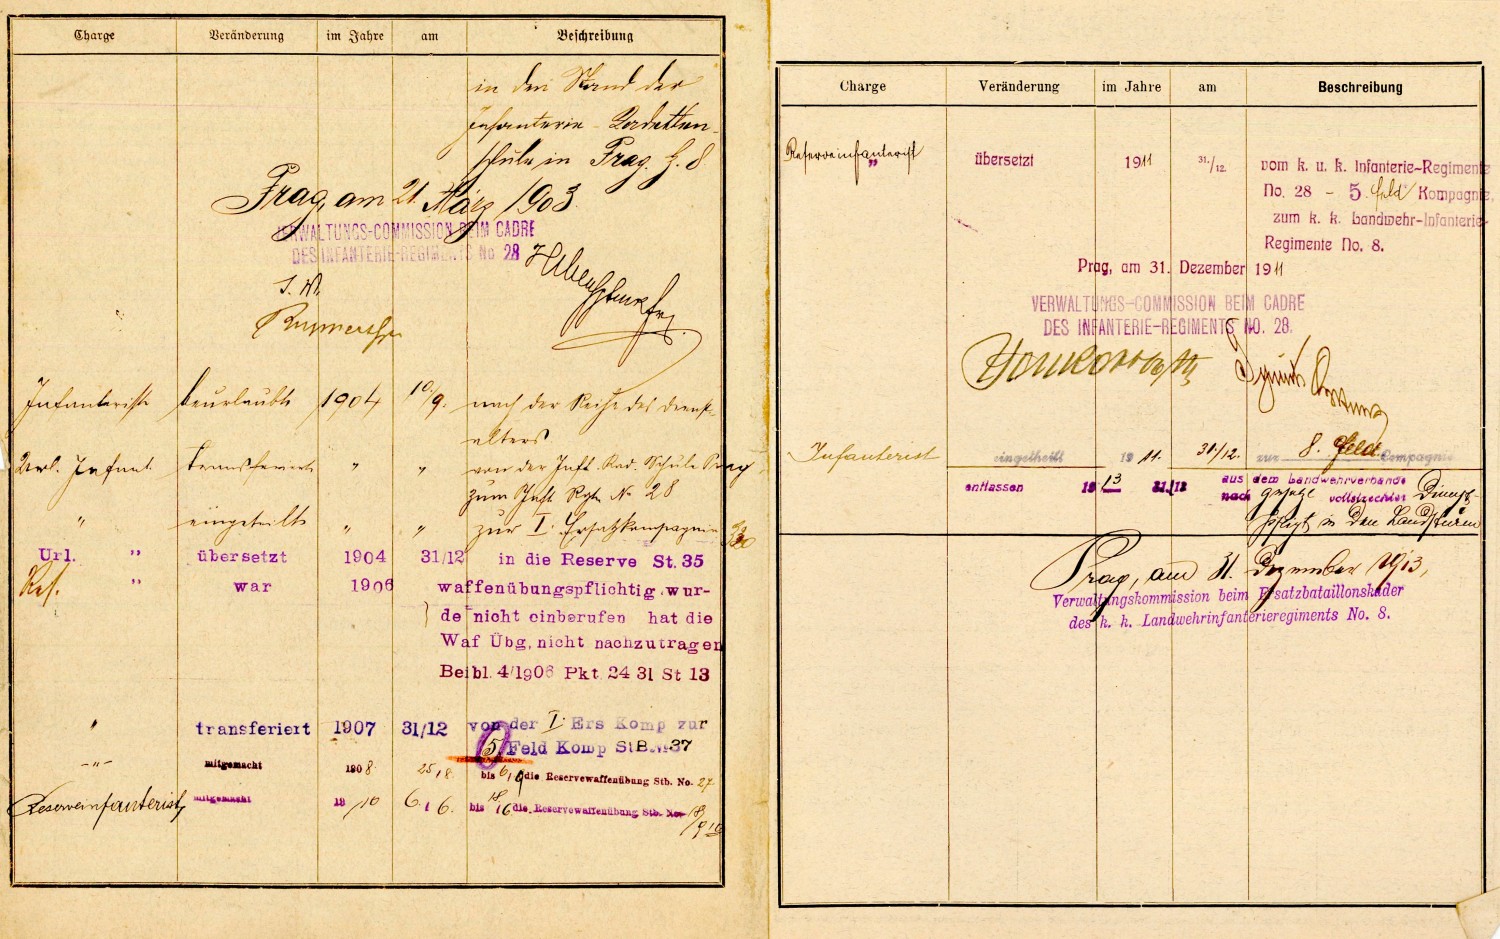 Charge Veränderung im Jahre am Beschreibung
in den Stand der
Infanterie-Cadetten-
schule in Prag. Z. 8
Prag, am 21. März 1903.
VERWALTUNGS-COMMISSION BEIM CADRE
DES INFANTERIE-REGIMENTS No 28
Infanterist beurlaubt 1904 10./9. nach der Reihe des Dienst-
alters
Url. Infant. transferiert " " von der Inft. Kad. Schule Prag
zum Inft. Rgte No 28
" eingeteilt " " zur I. Ersatzkompagnie
Url. " übersetzt 1904 31/12 in die Reserve St. 35
Res. " war 1906 waffenübungspflichtig wur-
de nicht einberufen hat die
Waf Übg, nicht nachzutragen
Beibl. 4/1906 Pkt. 24 31 St 13
" transferiert 1907 31/12 von der I. Ers Komp zur
5 Feld Komp St B. № 37
-"- mitgemacht 1908 25/8. bis 6/9 die Reservewaffenübung Stb. No. 27
Reserveinfanterist mitgemacht 19/10 6/6. bis 18/6 die Reservewaffenübung Stb. No.
Charge Veränderung im Jahre am Beschreibung
Reserveinfanterist " übersetzt 1911 31./12. vom k. u. k. Infanterie-Regimente
No. 28 - 5. Feld Kompagnie,
zum k. k. Landwehr-Infanterie-
Regimente No. 8.
Prag, am 31. Dezember 1911
VERWALTUNGS-COMMISSION BEIM CADRE
DES INFANTERIE-REGIMENTS NO. 28.
Infanterist eingetheilt 1911. 31./12. zur 8. Feld Compagnie
entlassen 1913 31./12 aus dem Landwehrverbande
nach vollstreckter Dienst-
pflicht in den Landsturm
Prag, am 31. Dezember 1913,
Verwaltungskommission beim Ersatzbataillonskader
des k. k. Landwehrinfanterieregiments No. 8.